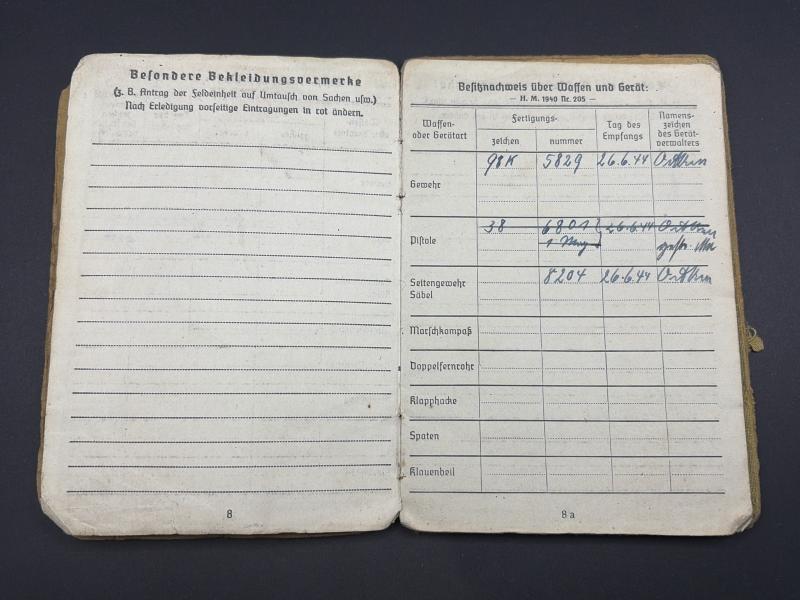 Besondere Bekleidungsvermerke
(z. B. Antrag der Feldeinheit auf Umtausch von Sachen usw.)
Nach Erledigung vorseitige Eintragungen in rot ändern.
8
Besitznachweis über Waffen und Gerät:
— H. M. 1940 Nr. 205 —
Waffen- oder Gerätart
Fertigungs-
zeichen
nummer
Tag des Empfangs
Namens- zeichen des Gerät- verwalters
Gewehr 98K 5829 26.6.44
Pistole 38 6801 26.6.44
1
Seitengewehr 8204 26.6.44
Säbel
Marschkompaß
Doppelfernrohr
Klapphacke
Spaten
Klauenbeil
8 a